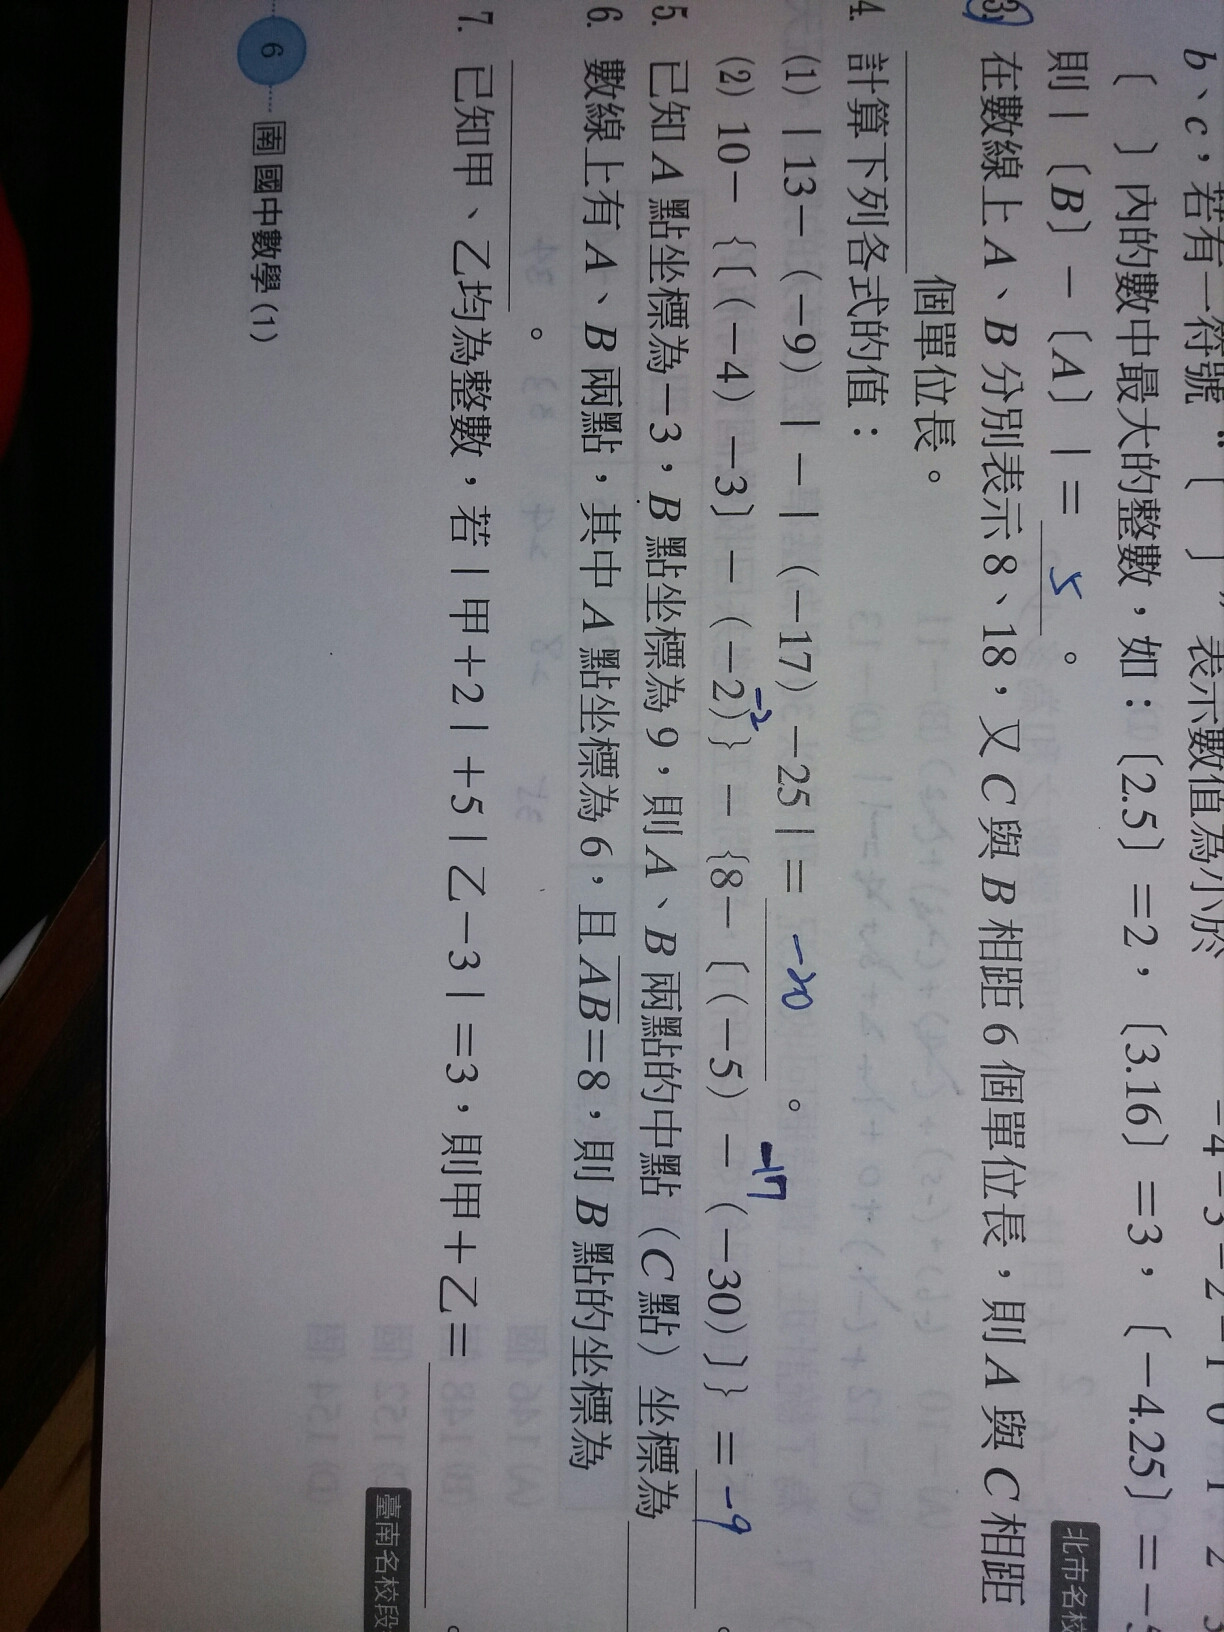 b、c，若有一符號：〔 〕
表示數值為小於
-4-3-2-1 0 1 2 3
〔 〕內的數中最大的整數，如：〔2.5〕=2，〔3.16〕=3，〔-4.25〕=-5
則|〔B〕-〔A〕|= 5 。
北市名校
3. 在數線上A、B分別表示8、18，又C與B相距6個單位長，則A與C相距
個單位長。
4. 計算下列各式的值：
(1) |13-(-9)|-|(-17)-25|= -20 。
(2) 10-{〔(-4)-3〕-(-2)}-{8-〔(-5)-(-30)〕}= -9 。
-2
-17
5. 已知A點坐標為-3，B點坐標為9，則A、B兩點的中點（C點）坐標為
6. 數線上有A、B兩點，其中A點坐標為6，且AB=8，則B點的坐標為
。
7. 已知甲、乙均為整數，若|甲+2|+5|乙-3|=3，則甲+乙= 。
臺南名校段
6 南 國中數學(1)